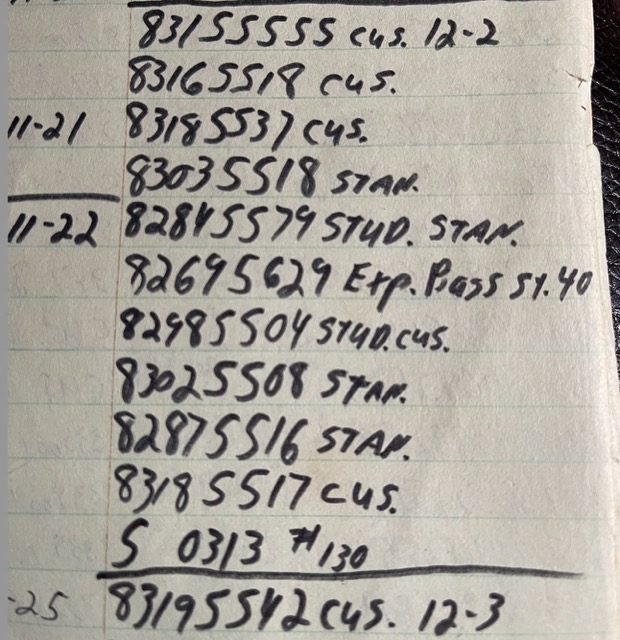 83155555 cus. 12-2
83165518 cus.
11-21 83185537 cus.
83035518 STAN.
11-22 82845579 STUD. STAN.
82695629 Exp. Bass St. 40
82985504 STUD. cus.
83025508 STAN.
82875516 STAN.
83185517 cus.
S 0313 #130
-25 83195542 cus. 12-3